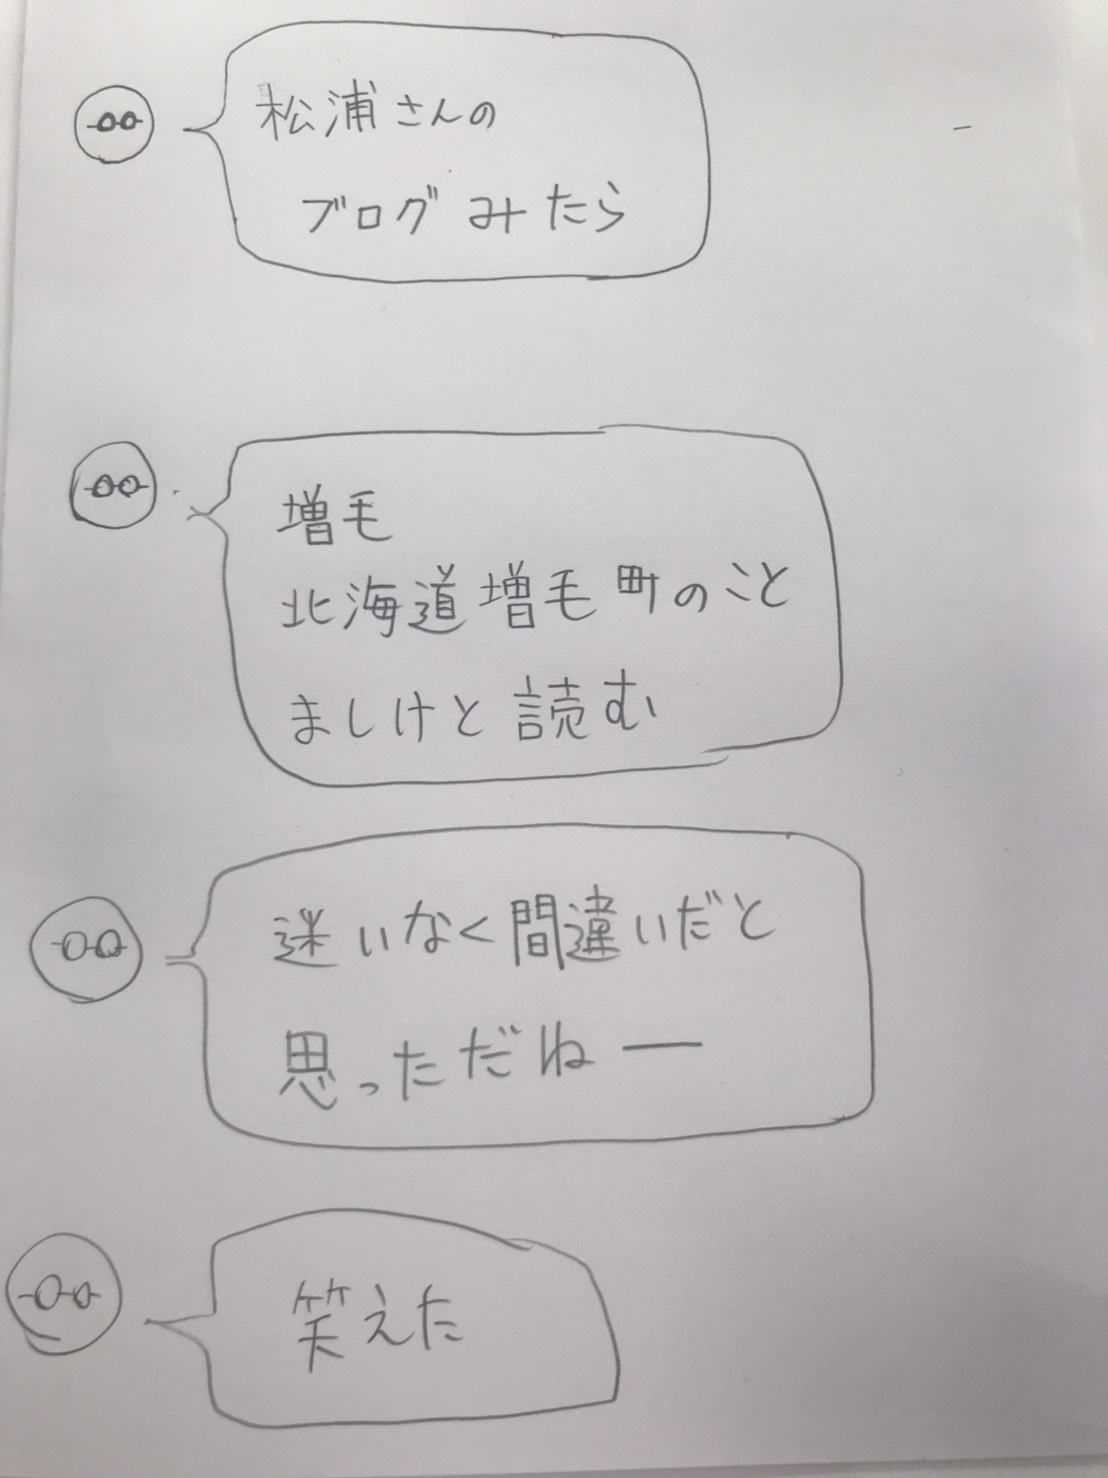 松浦さんの
ブログみたら
増毛
北海道増毛町のこと
ましけと読む
迷いなく間違いだと
思っただねー
笑えた